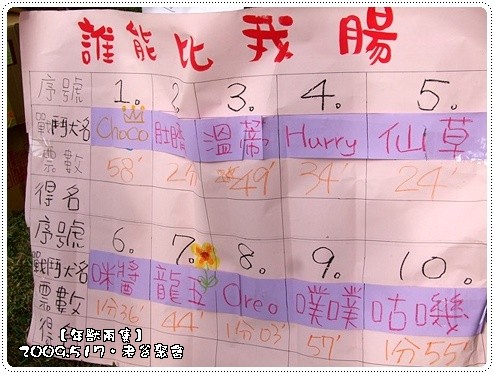 誰能比我腸
序號 1. 2. 3. 4. 5.
戰鬥犬名 Choco 肚臍 溫蒂 Hurry 仙草
票數 58' 2分 49' 34' 24'
得名
序號 6. 7. 8. 9. 10.
戰鬥犬名 咪醬 龍五 Oreo 噗噗 咕嘰
票數 1分36' 44' 1分03' 57' 1分55'
得
【年獸兩隻】
2009.5.17·老爺聚會